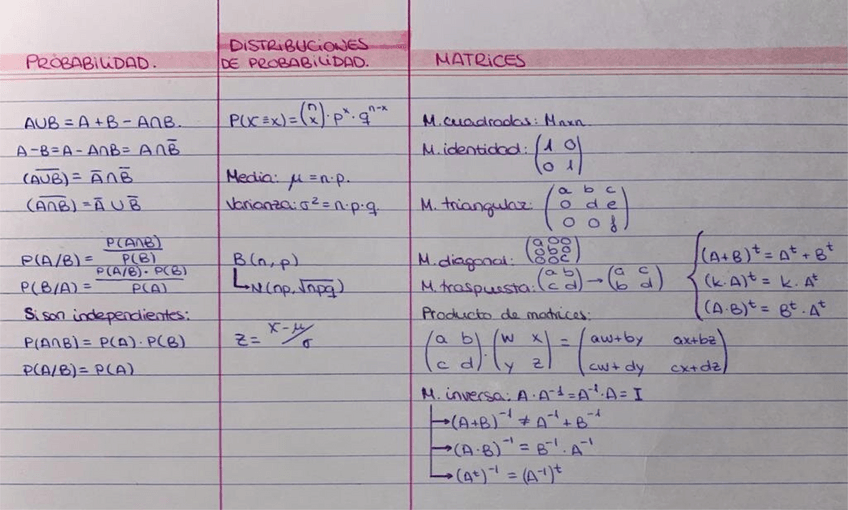 PROBABILIDAD.
A∪B = A + B - A∩B.
A-B = A - A∩B = A∩B̅
(A̅∪̅B̅) = A̅∩B̅
(A̅∩̅B̅) = A̅∪B̅
P(A/B) = P(A∩B) / P(B)
P(B/A) = P(A/B)·P(B) / P(A)
Si son independientes:
P(A∩B) = P(A)·P(B)
P(A/B) = P(A)
DISTRIBUCIONES
DE PROBABILIDAD.
P(X=x) = (n x)·pˣ·qⁿ⁻ˣ
Media: μ = n·p.
Varianza: σ² = n·p·q.
B(n, p)
↳ N(np, √npq)
z = x-μ / σ
MATRICES
M. cuadradas: Mnxn
M. identidad: (1 0
0 1)
M. triangular: (a b c
0 d e
0 0 f)
M. diagonal: (a 0 0
0 b 0
0 0 c)
M. traspuesta: (a b
c d) → (a c
b d)
(A+B)ᵗ = Aᵗ + Bᵗ
(k·A)ᵗ = k·Aᵗ
(A·B)ᵗ = Bᵗ·Aᵗ
Producto de matrices:
(a b
c d)·(w x
y z) = (aw+by ax+bz
cw+dy cx+dz)
M. inversa: A·A⁻¹ = A⁻¹·A = I
→ (A+B)⁻¹ ≠ A⁻¹ + B⁻¹
→ (A·B)⁻¹ = B⁻¹·A⁻¹
→ (Aᵗ)⁻¹ = (A⁻¹)ᵗ